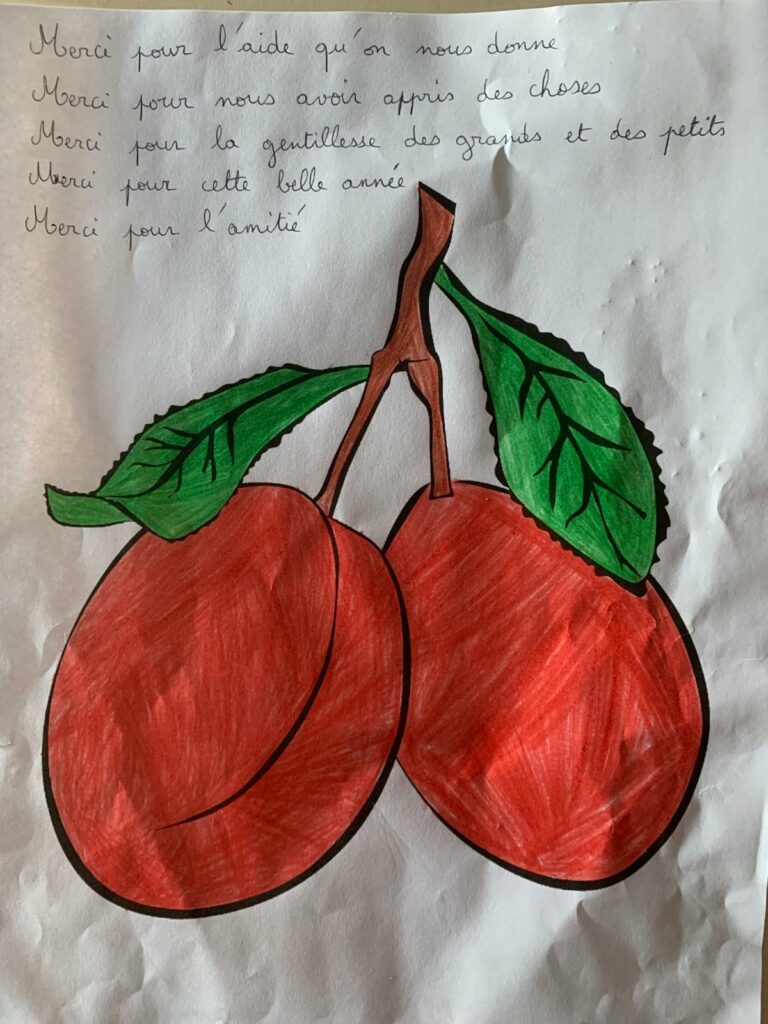 Merci pour l'aide qu'on nous donne
Merci pour nous avoir appris des choses
Merci pour la gentillesse des grands et des petits
Merci pour cette belle année
Merci pour l'amitié